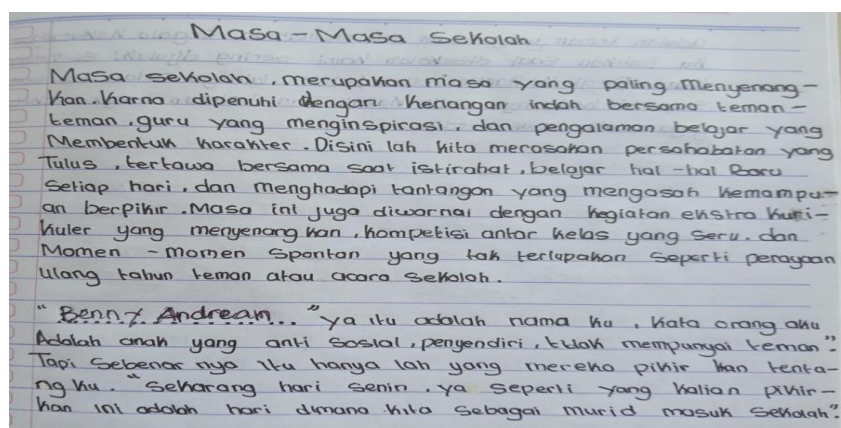 Masa - Masa Sekolah
Masa sekolah, merupakan masa yang paling Menyenang-
kan. Karna dipenuhi dengan kenangan indah bersama teman -
teman, guru yang menginspirasi, dan pengalaman belajar yang
Membentuk karakter. Disini lah kita merasakan persahabatan yang
Tulus, tertawa bersama saat istirahat, belajar hal - hal Baru
Setiap hari, dan menghadapi tantangan yang mengasah kemampu-
an berpikir. Masa ini juga diwarnai dengan kegiatan ekstra kuri-
kuler yang menyenang kan, kompetisi antar kelas yang seru, dan
Momen - momen spontan yang tak terlupakan Seperti perayaan
ulang tahun teman atau acara sekolah.
"Benny Andrean..." ya itu adalah nama ku, kata orang aku
Adalah anak yang anti Sosial, penyendiri, tidak mempunyai teman".
Tapi Sebenar nya itu hanya lah yang mereka pikir kan tenta-
ng ku. "Sekarang hari senin, ya seperti yang kalian pikir-
kan ini adalah hari dimana kita sebagai murid masuk sekolah".